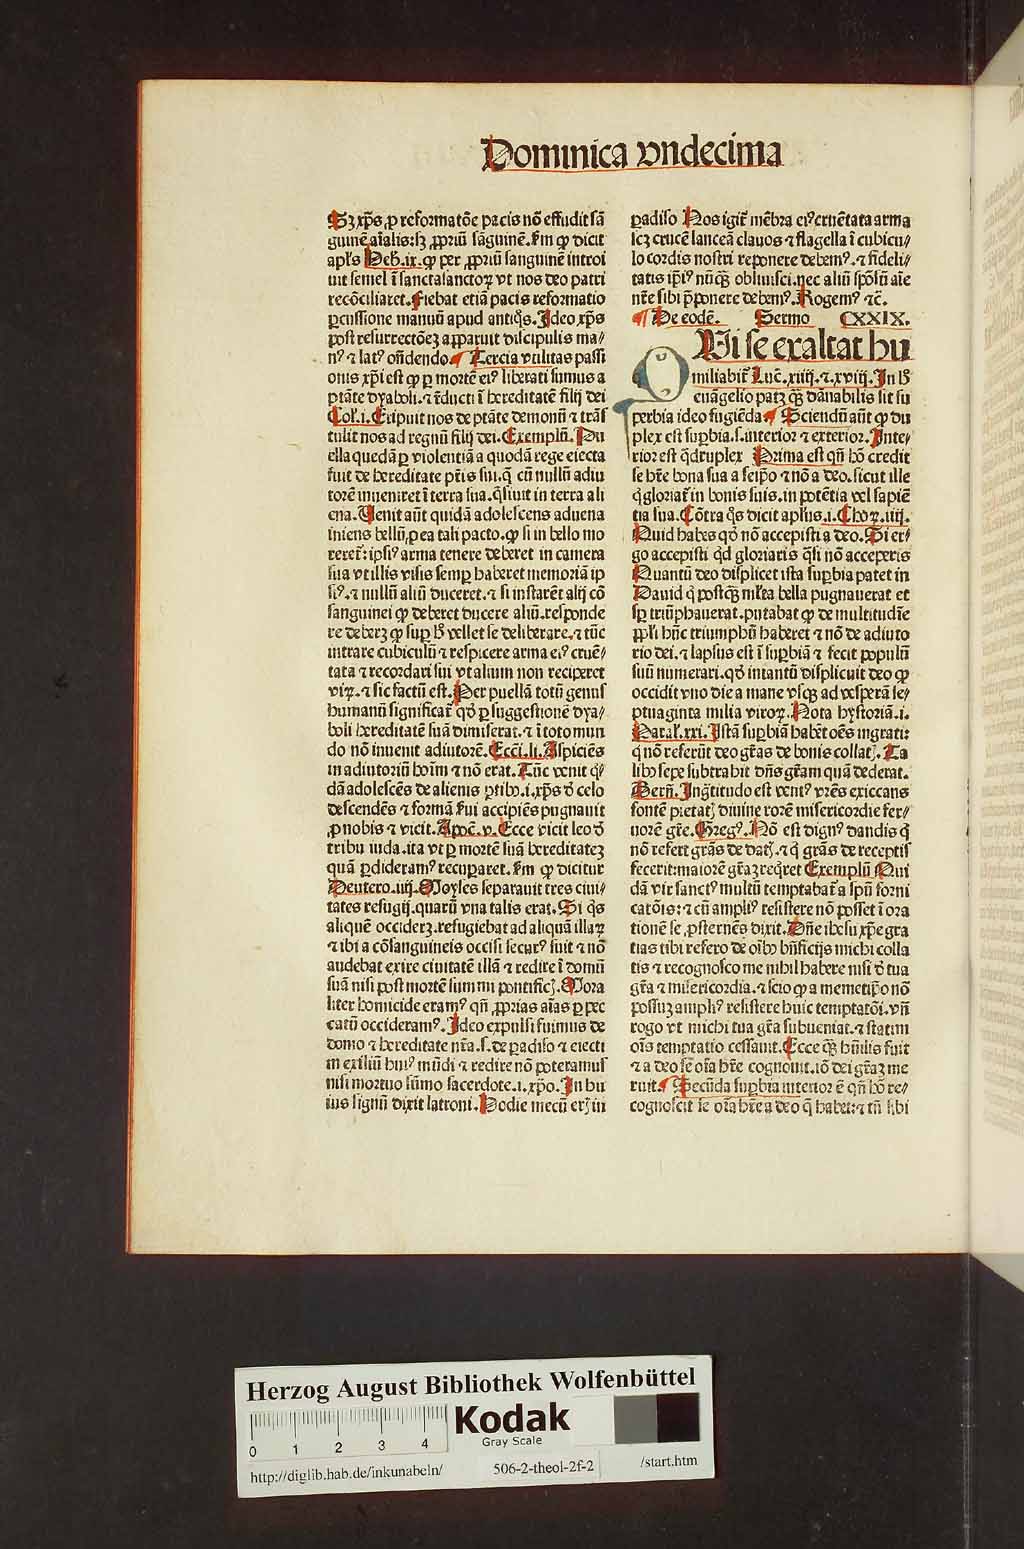 Dominica vndecima
Sꝫ xp̄s ꝓ reformatōe pacis nō effudit sā
guinē aīalis: sꝫ ꝓpriū sāguinē. km̄ ꝙ dicit
apl̄s Heb̄. ix. ꝙ per ꝓpriū sanguinē introi
uit semel ī sancta sanctoꝝ vt nos deo patri
recōciliaret. Fiebat etiā pacis reformatio
ꝑcussione manuū apud antiq̄s. Ideo xp̄s
post resurrectōeꝫ apparuit discipulis ma/
nꝰ ⁊ latꝰ on̄dendo. Tercia vtilitas passi
onis xp̄i est ꝙ ꝑ mortē eiꝰ liberati sumus a
ptāte dyaboli. ⁊ īducti ī hereditatē filij dei
Col̄. i. Eripuit nos de ptāte demonū ⁊ trās
tulit nos ad regnū filij dei. Exemplū. Pu
ella quedā ꝑ violentiā a quodā rege eiecta
fuit de hereditate pr̄is sui. q̄ cū nullū adiu
torē inueniret ī terra sua. q̄siuit in terra ali
ena. Venit aūt quidā adolescens aduena
iniens bellū ꝓ ea tali pacto. ꝙ si in bello mo
reret̄: ipsiꝰ arma tenere deberet in camera
sua vt illis visis semꝑ haberet memoriā ip
siꝰ. ⁊ nullū aliū duceret. ⁊ si instarēt alij cō
sanguinei ꝙ deberet ducere aliū. responde
re deberꝫ ꝙ suꝑ h̄ vellet se deliberare. ⁊ tūc
intrare cubiculū ⁊ respicere arma eiꝰ cruē/
tata ⁊ recordari sui vt alium non reciperet
viꝝ. ⁊ sic factū est. Per puellā totū genus
humanū significat̄ qd̄ ꝑ suggestionē dya/
boli hereditatē suā dimiserat. ⁊ ī toto mun
do nō inuenit adiutorē. Ecc̄i. li. Aspiciēs
in adiutoriū hoīm ⁊ nō erat. Tūc venit q̄/
dā adolescēs de alienis ꝑtibꝰ. i. xp̄s d̄ celo
descendēs ⁊ formā serui accipiēs pugnauit
ꝓ nobis ⁊ vicit. Apoc̄. v. Ecce vicit leo d̄
tribu iuda. ita vt ꝑ mortē suā hereditateꝫ
quā ꝑdideramꝰ recuparet. km̄ ꝙ dicitur
Deutero. iiij. Moyses separauit tres ciui/
tates refugij. quarū vna talis erat. Si q̄s
aliquē occiderꝫ. refugiebat ad aliquā illaꝝ
⁊ ibi a cōsanguineis occisi securꝰ fuit ⁊ nō
audebat exire ciuitatē illā ⁊ redire ī domū
suā nisi post mortē summi pontificꝭ. Mora
liter homicide eramꝰ qn̄ ꝓprias aīas ꝑ pec
catū occideramꝰ. Ideo expulsi fuimus de
domo ⁊ hereditate nr̄a. s. de ꝑadiso ⁊ eiecti
in exiliū huiꝰ mūdi ⁊ redire nō poteramus
nisi mortuo sūmo sacerdote. i. xp̄o. In hu
ius signū dixit latroni. Hodie mecū erꝭ in
ꝑadiso Nos igit̄ mēbra eiꝰ cruētata arma
scꝫ crucē lanceā clauos ⁊ flagella ī cubicu/
lo cordis nostri reponere debemꝰ. ⁊ fideli/
tatis ip̄iꝰ nūq̄ꝫ obliuisci. nec aliū sp̄ōsū aīe
nr̄e sibi p̄ponere debemꝰ. Rogemꝰ ⁊c̄.
De eodē. Sermo CXXIX.
QVi se exaltat hu
miliabit̄ Luc̄. xiiij. ⁊. xviij. In h̄
euāgelio patꝫ q̄ꝫ dānabilis sit su
perbia ideo fugiēda Sciendū aūt ꝙ du
plex est suꝑbia. s. interior ⁊ exterior. Inte/
rior est q̄druplex Prima est qn̄ hō credit
se hr̄e bona sua a seip̄o ⁊ nō a deo. sicut ille
q̄ gloriat̄ in bonis suis. in potētia vel sapiē
tia sua. Cōtra q̄s dicit apl̄us. i. Choꝝ. iiij.
Quid habes qd̄ nō accepisti a deo. Si er/
go accepisti qd̄ gloriaris q̄si nō acceperis
Quantū deo displicet ista suꝑbia patet in
Dauid q̄ postq̄ꝫ ml̄ta bella pugnauerat et
sꝑ triūphauerat. putabat ꝙ de multitudīe
ppl̄i hūc triumphū haberet ⁊ nō de adiuto
rio dei. ⁊ lapsus est ī suꝑbiā ⁊ fecit populū
suū numerari. qd̄ intantū displicuit deo ꝙ
occidit vno die a mane vsqꝫ ad vesperā se/
ptuaginta milia viroꝝ. Nota hystoriā. i.
Paral̄. xxi. Istā suꝑbiā habēt oēs ingrati:
q̄ nō referūt deo gr̄as de bonis collatꝭ. Ta
libꝰ sepe subtrahit dn̄s gr̄am quā dederat.
Bern̄. Ingr̄titudo est ventꝰ vrēs exiccans
fontē pietatꝭ diuine rorē misericordie fer/
uorē gr̄e. Gregꝰ. Nō est dignꝰ dandis q̄
nō refert grās de datꝭ. ⁊ q̄ grās de receptis
fecerit: maiorē gr̄aꝫ req̄ret Exemplū Qui
dā vir sanctꝰ multū temptabat̄ a spū forni
catōis: ⁊ cū ampliꝰ resistere nō posset ī ora
tionē se ꝓsternēs dixit. Dn̄e ihesu xp̄e gra
tias tibi refero de oībꝰ bn̄ficijs michi colla
tis ⁊ recognosco me nihil habere nisi d̄ tua
gr̄a ⁊ misericordia. ⁊ scio ꝙ a memetip̄o nō
possuꝫ ampliꝰ resistere huic temptatōi. vn̄
rogo vt michi tua gr̄a subueniat. ⁊ statim
oīs temptatio cessauit. Ecce q̄ꝫ hūilis fuit
⁊ a deo se oīa hr̄e cognouit. iō dei gr̄aꝫ me
ruit. Secūda suꝑbia interior ē qn̄ hō re/
cognoscit se oīa hr̄e a deo q̄ habet: ⁊ tn̄ sibi
Herzog August Bibliothek Wolfenbüttel
Kodak
Gray Scale
0 1 2 3 4
http://diglib.hab.de/inkunabeln/ 506-2-theol-2f-2 /start.htm